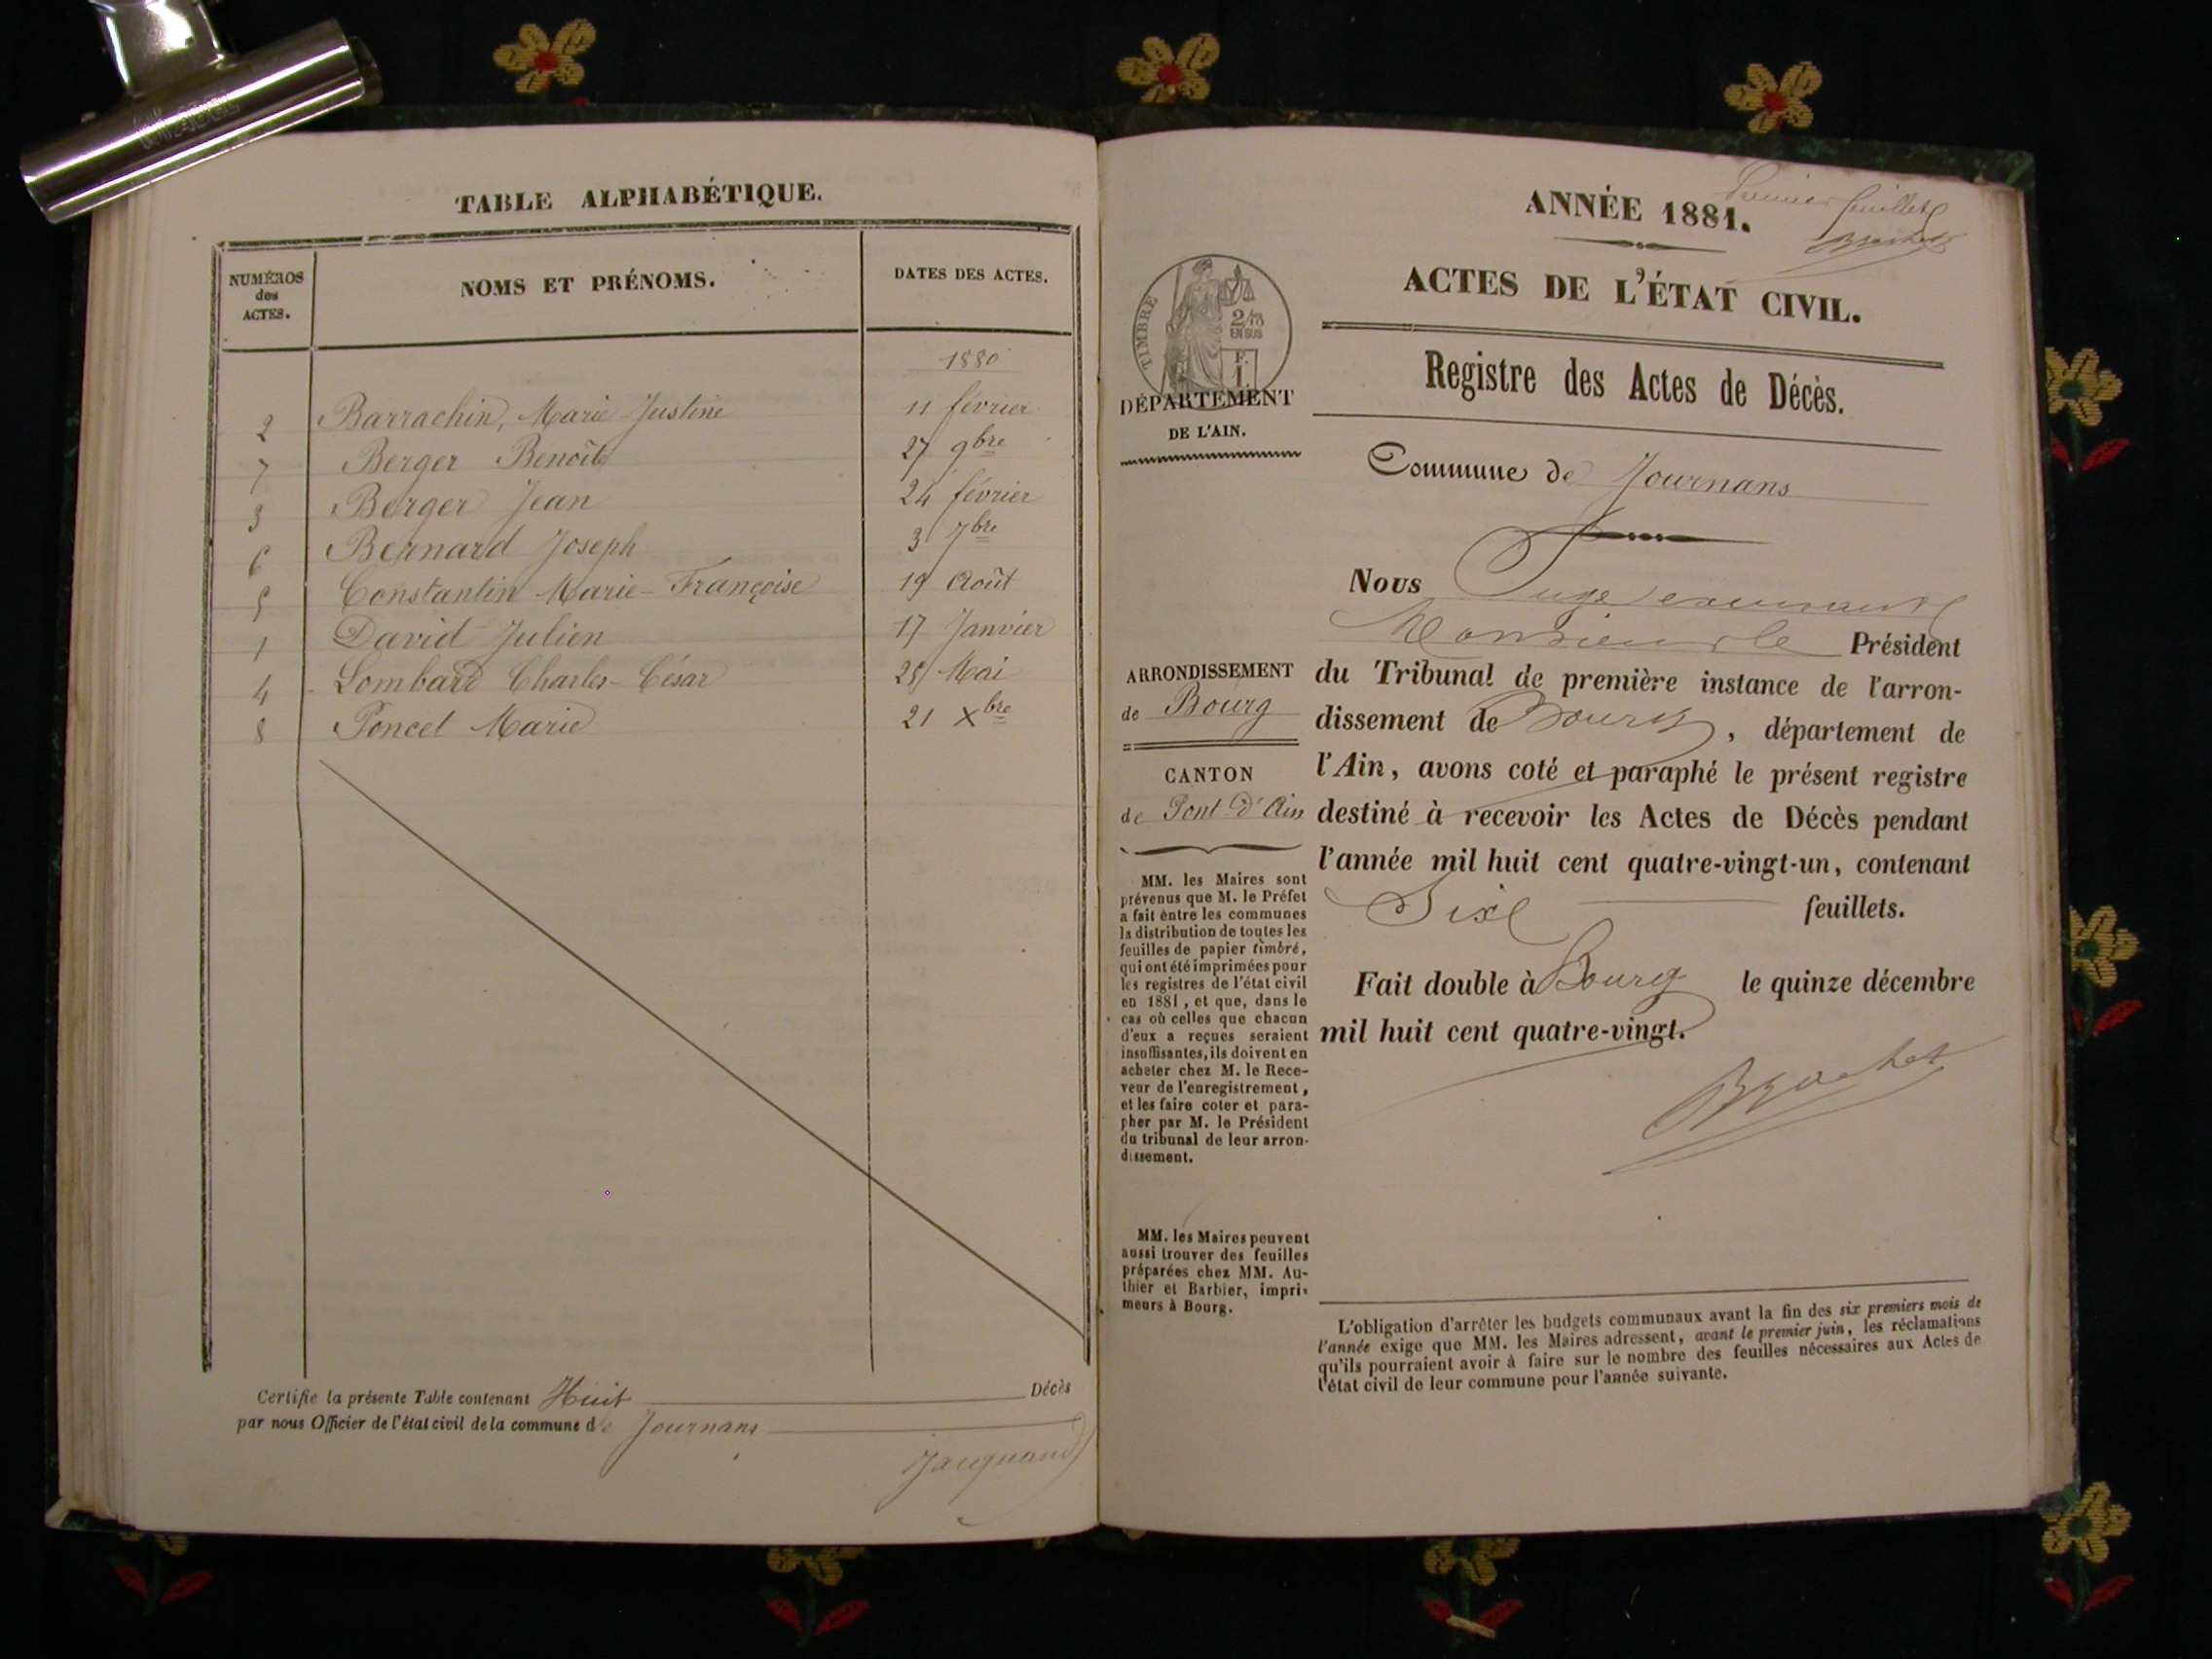 TABLE ALPHABÉTIQUE.
NUMÉROS
des
ACTES.
NOMS ET PRÉNOMS.
DATES DES ACTES.
1880
2 Barrachin, Marie Justine 11 février
7 Berger Benoît 27 9bre
3 Berger Jean 24 février
6 Bernard Joseph 3 7bre
5 Constantin Marie-Françoise 19 Août
1 David Julien 17 Janvier
4 Lombard Charles-César 28 Mai
8 Poncet Marie 21 Xbre
Certifie la présente Table contenant Huit Décès
par nous Officier de l'état civil de la commune de Journans
Jacquand
Premier feuillet
Brochet
ANNÉE 1881.
ACTES DE L'ÉTAT CIVIL.
Registre des Actes de Décès.
TIMBRE
2/10
EN SUS
F.
1.
DÉPARTEMENT
DE L'AIN.
Commune de Journans
Nous Juge
Monsieur le Président
du Tribunal de première instance de l'arron-
dissement de Bourg, département de
l'Ain, avons coté et paraphé le présent registre
destiné à recevoir les Actes de Décès pendant
l'année mil huit cent quatre-vingt-un, contenant
Six feuillets.
Fait double à Bourg le quinze décembre
mil huit cent quatre-vingt.
Brochet
ARRONDISSEMENT
de Bourg
CANTON
de Pont d'Ain
MM. les Maires sont
prévenus que M. le Préfet
a fait entre les communes
la distribution de toutes les
feuilles de papier timbré,
qui ont été imprimées pour
les registres de l'état civil
en 1881, et que, dans le
cas où celles que chacun
d'eux a reçues seraient
insuffisantes, ils doivent en
acheter chez M. le Rece-
veur de l'enregistrement,
et les faire coter et para-
pher par M. le Président
du tribunal de leur arron-
dissement.
MM. les Maires peuvent
aussi trouver des feuilles
préparées chez MM. Au-
thier et Barbier, impri-
meurs à Bourg.
L'obligation d'arrêter les budgets communaux avant la fin des six premiers mois de
l'année exige que MM. les Maires adressent, avant le premier juin, les réclamations
qu'ils pourraient avoir à faire sur le nombre des feuilles nécessaires aux Actes de
l'état civil de leur commune pour l'année suivante.